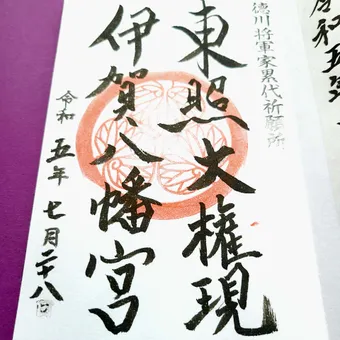 令和五年
徳川将軍家累代祈願所
東照大権現
伊賀八幡宮
令和五年七月二十八